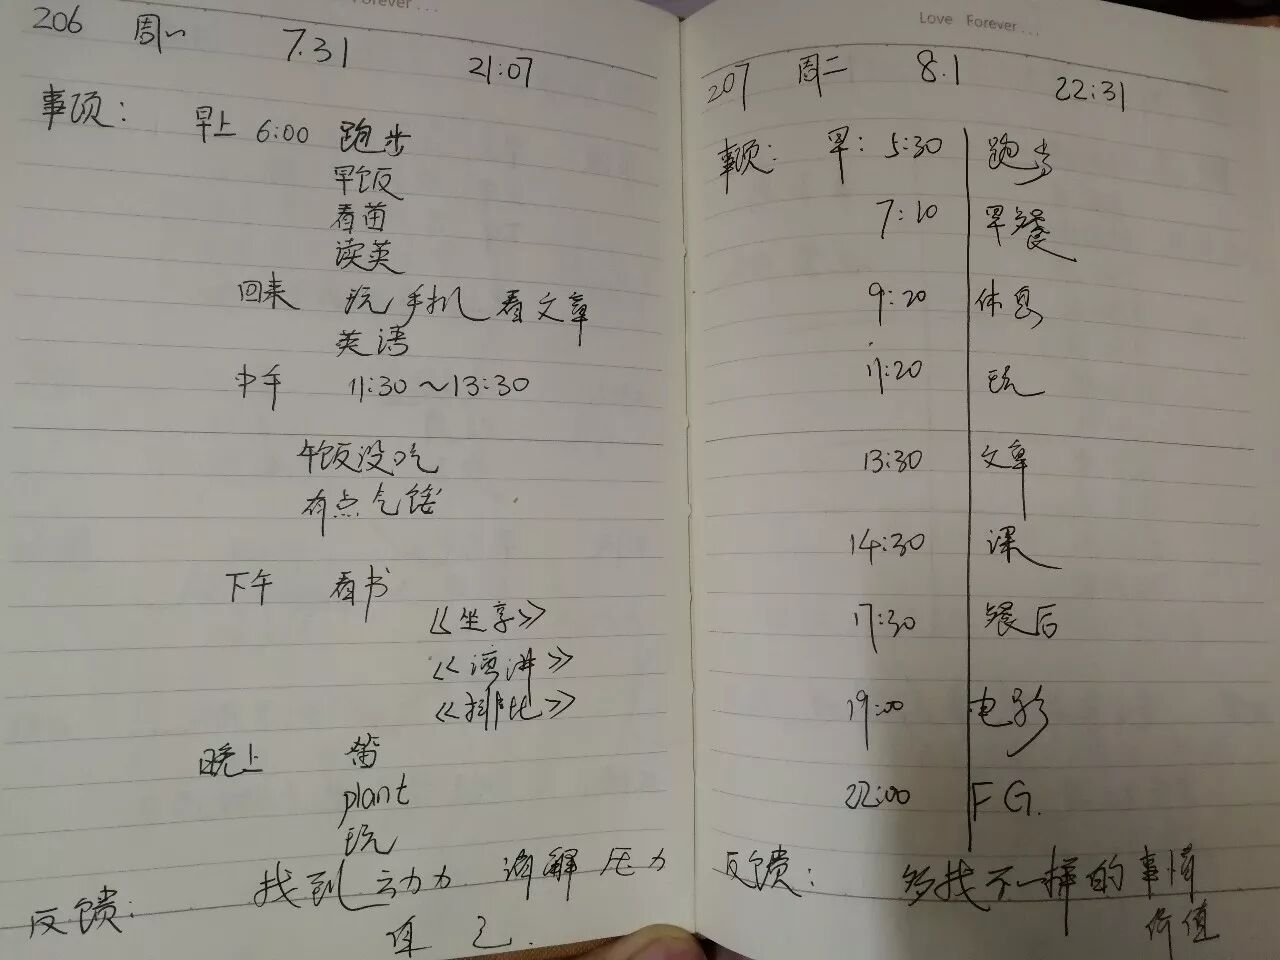 Forever...
206 周一 7.31 21:07
事项: 早上 6:00 跑步
早饭
看苗
读英
回来 玩手机 看文章
英语
中午 11:30~13:30
午饭没吃
有点气馁
下午 看书
《坐享》
《演讲》
《排比》
晚上
plant
玩
反馈: 找到动力 调解压力
Love Forever...
207 周二 8.1 22:31
事项: 早: 5:30 跑步
7:10 早餐
9:20 休息
11:20 玩
13:30 文章
14:30 课
17:30 餐后
19:00 电影
22:00 FG.
反馈: 多找不一样的事情
价值